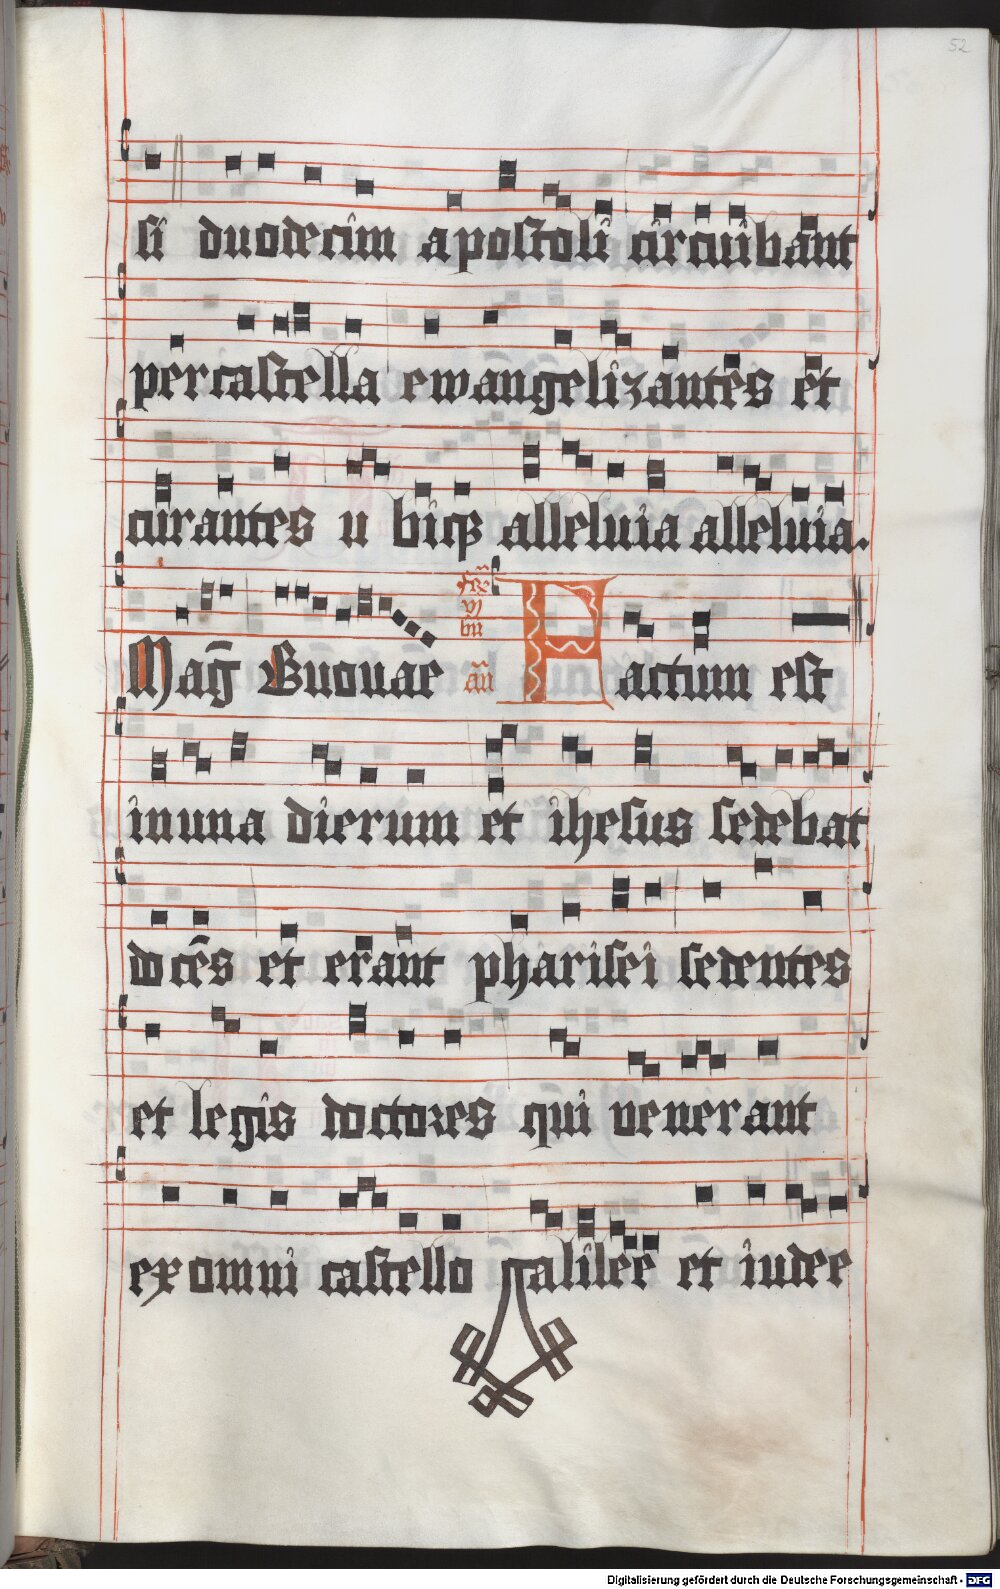 52
si duodecim apostoli circuibant
percastella ewangelizantes et
curantes u biqȝ alleluia alleluia.
Mag̅ Euouae an̅ Factum est
inuna dierum et ihesus sedebat
doce̅s et erant pharisei sedentes
et legis doctores qui venerant
ex omni castello galilee et iudee
Digitalisierung gefördert durch die Deutsche Forschungsgemeinschaft - DFG